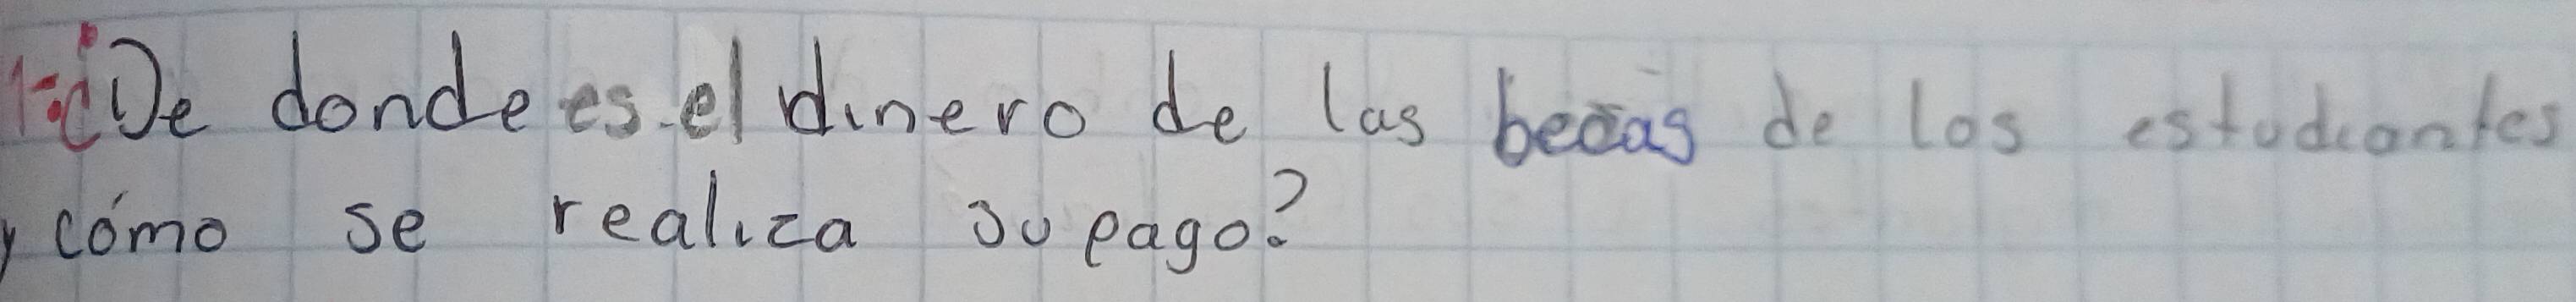 1-¿De donde es el dinero de las becas de los estudiantes
y cómo se realiza su pago?